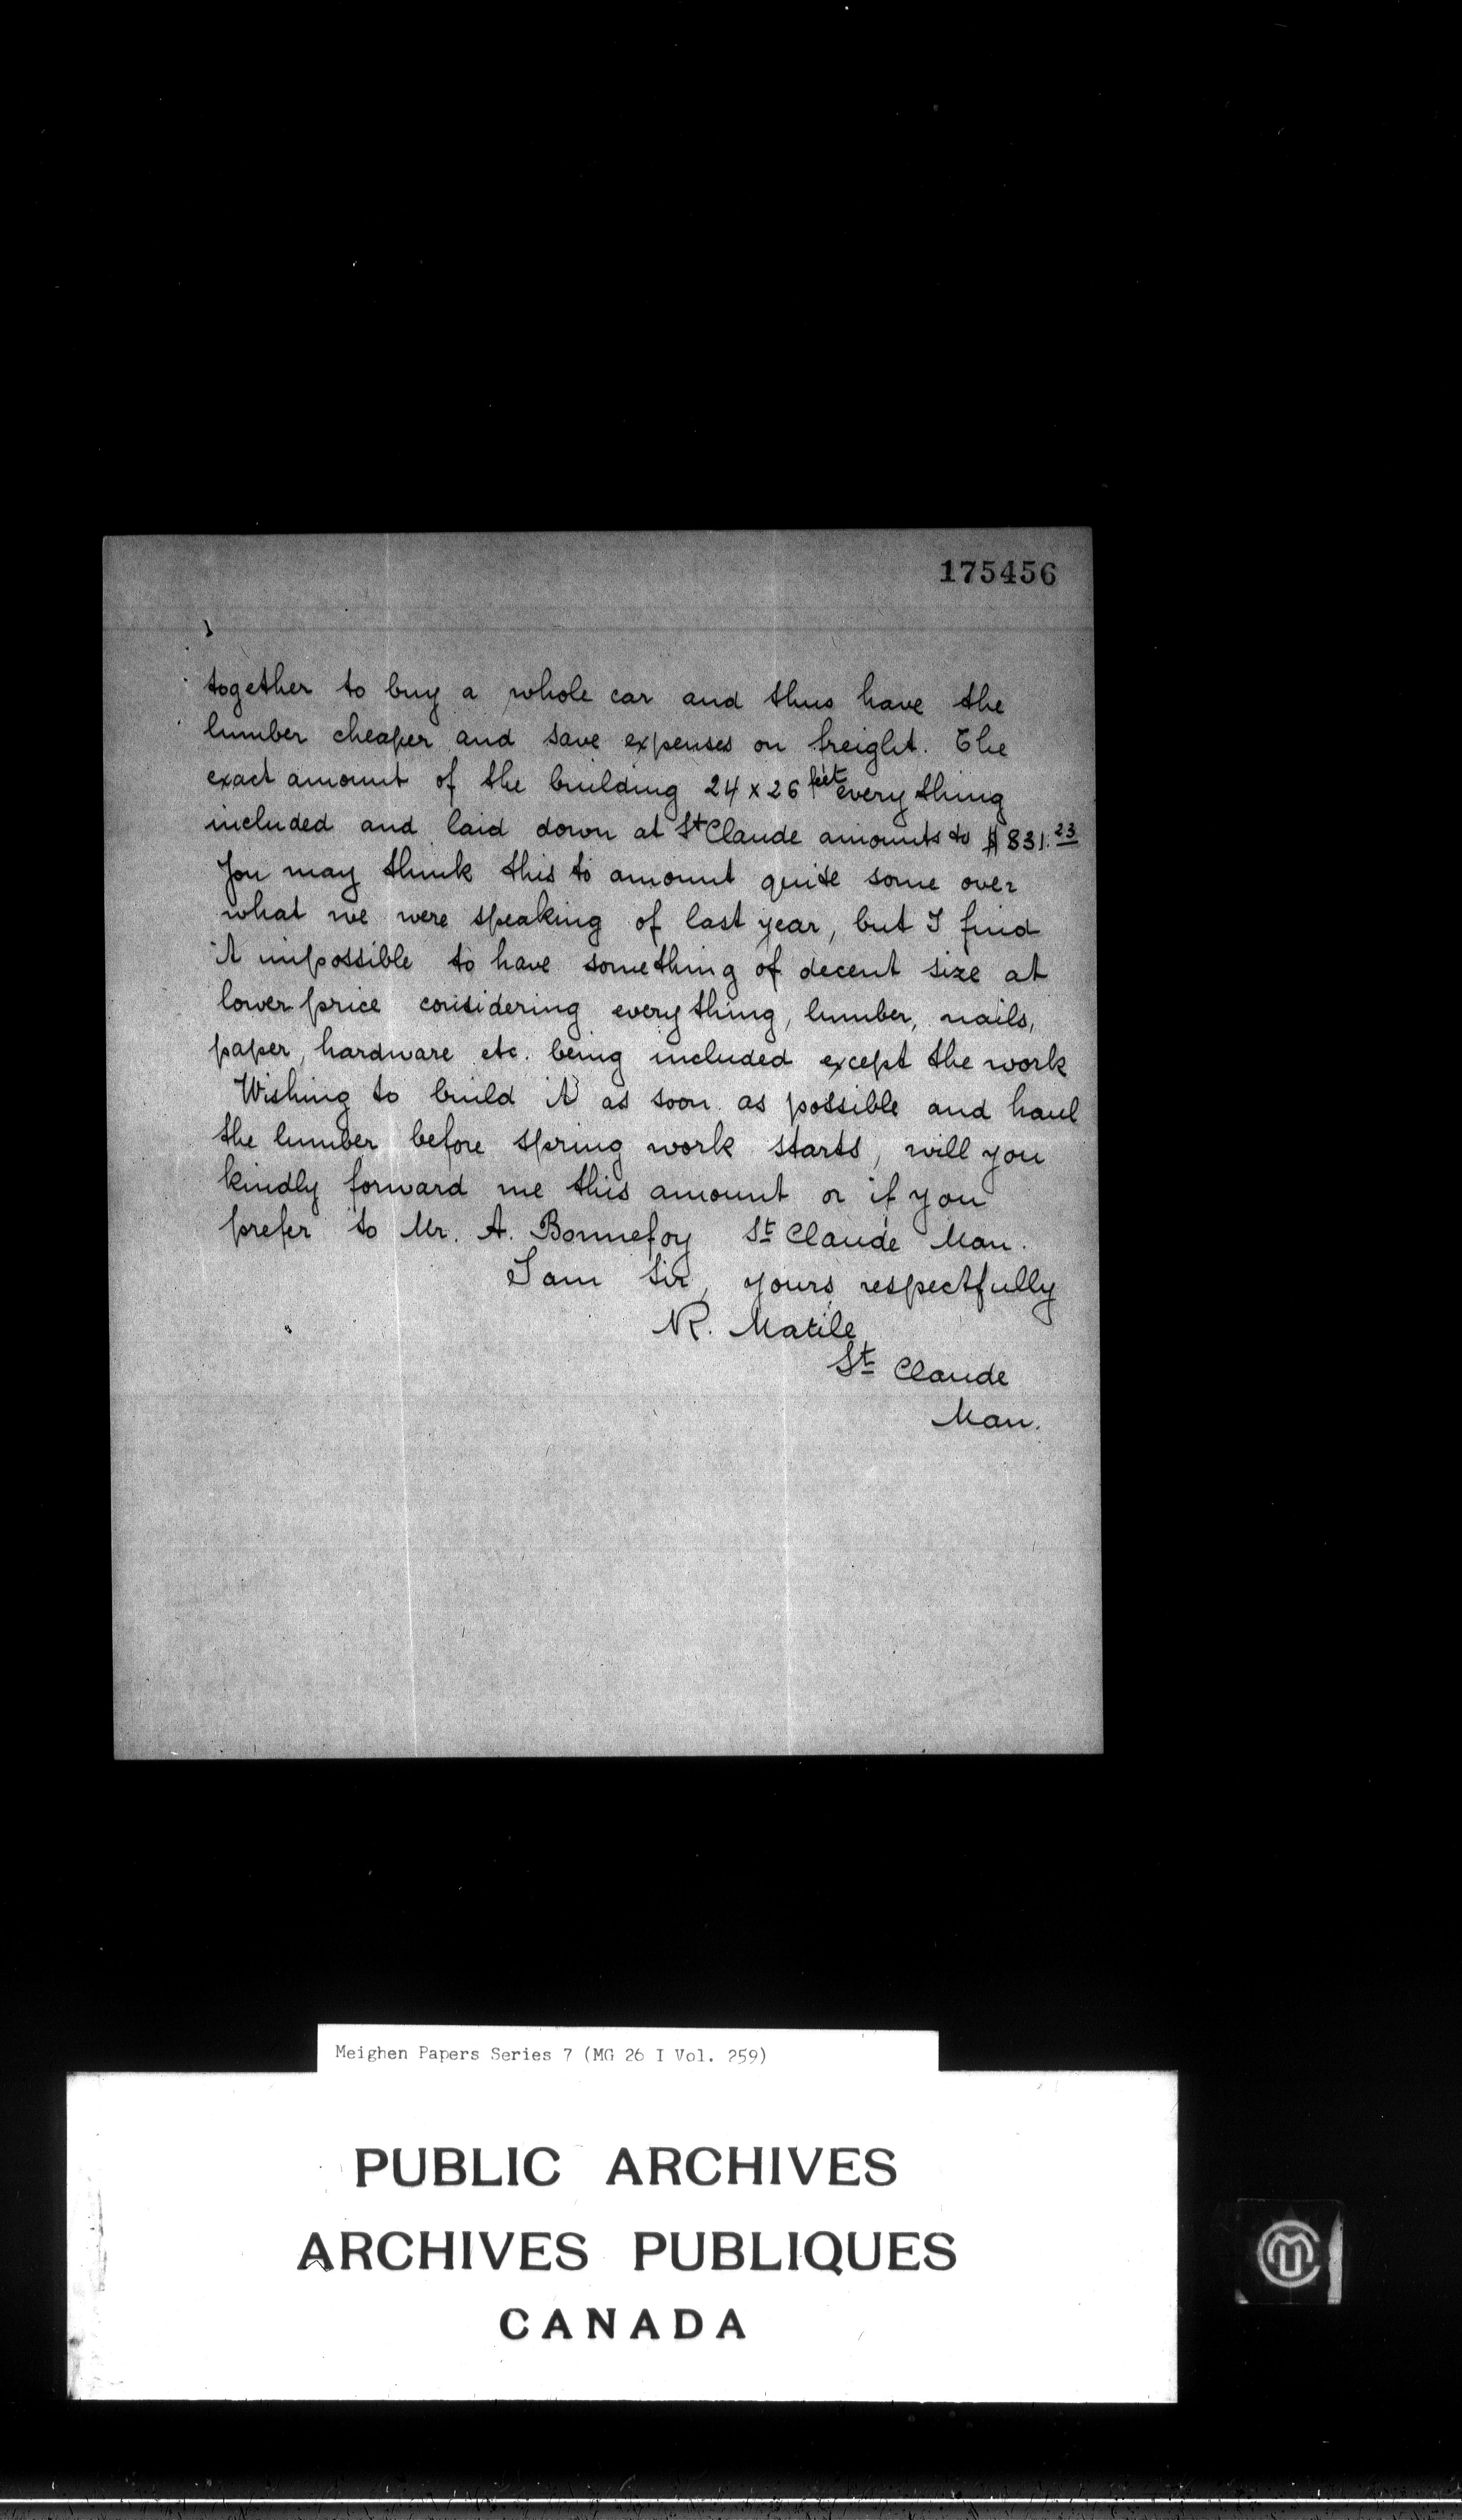 175456
together to buy a whole car and thus have the
lumber cheaper and save expenses on freight. The
exact amount of the building 24 x 26 feet everything
included and laid down at St Claude amounts to $831.23
You may think this to amount quite some over
what we were speaking of last year, but I find
it impossible to have something of decent size at
lower price considering everything, lumber, nails,
paper, hardware etc. being included except the work
Wishing to build it as soon as possible and haul
the lumber before spring work starts, will you
kindly forward me this amount or if you
prefer to Mr. A. Bonnefoy St Claude Man.
I am Sir, yours respectfully
NR. Matile
St Claude
Man.
Meighen Papers Series 7 (MG 26 I Vol. 259)
PUBLIC ARCHIVES
ARCHIVES PUBLIQUES
CANADA